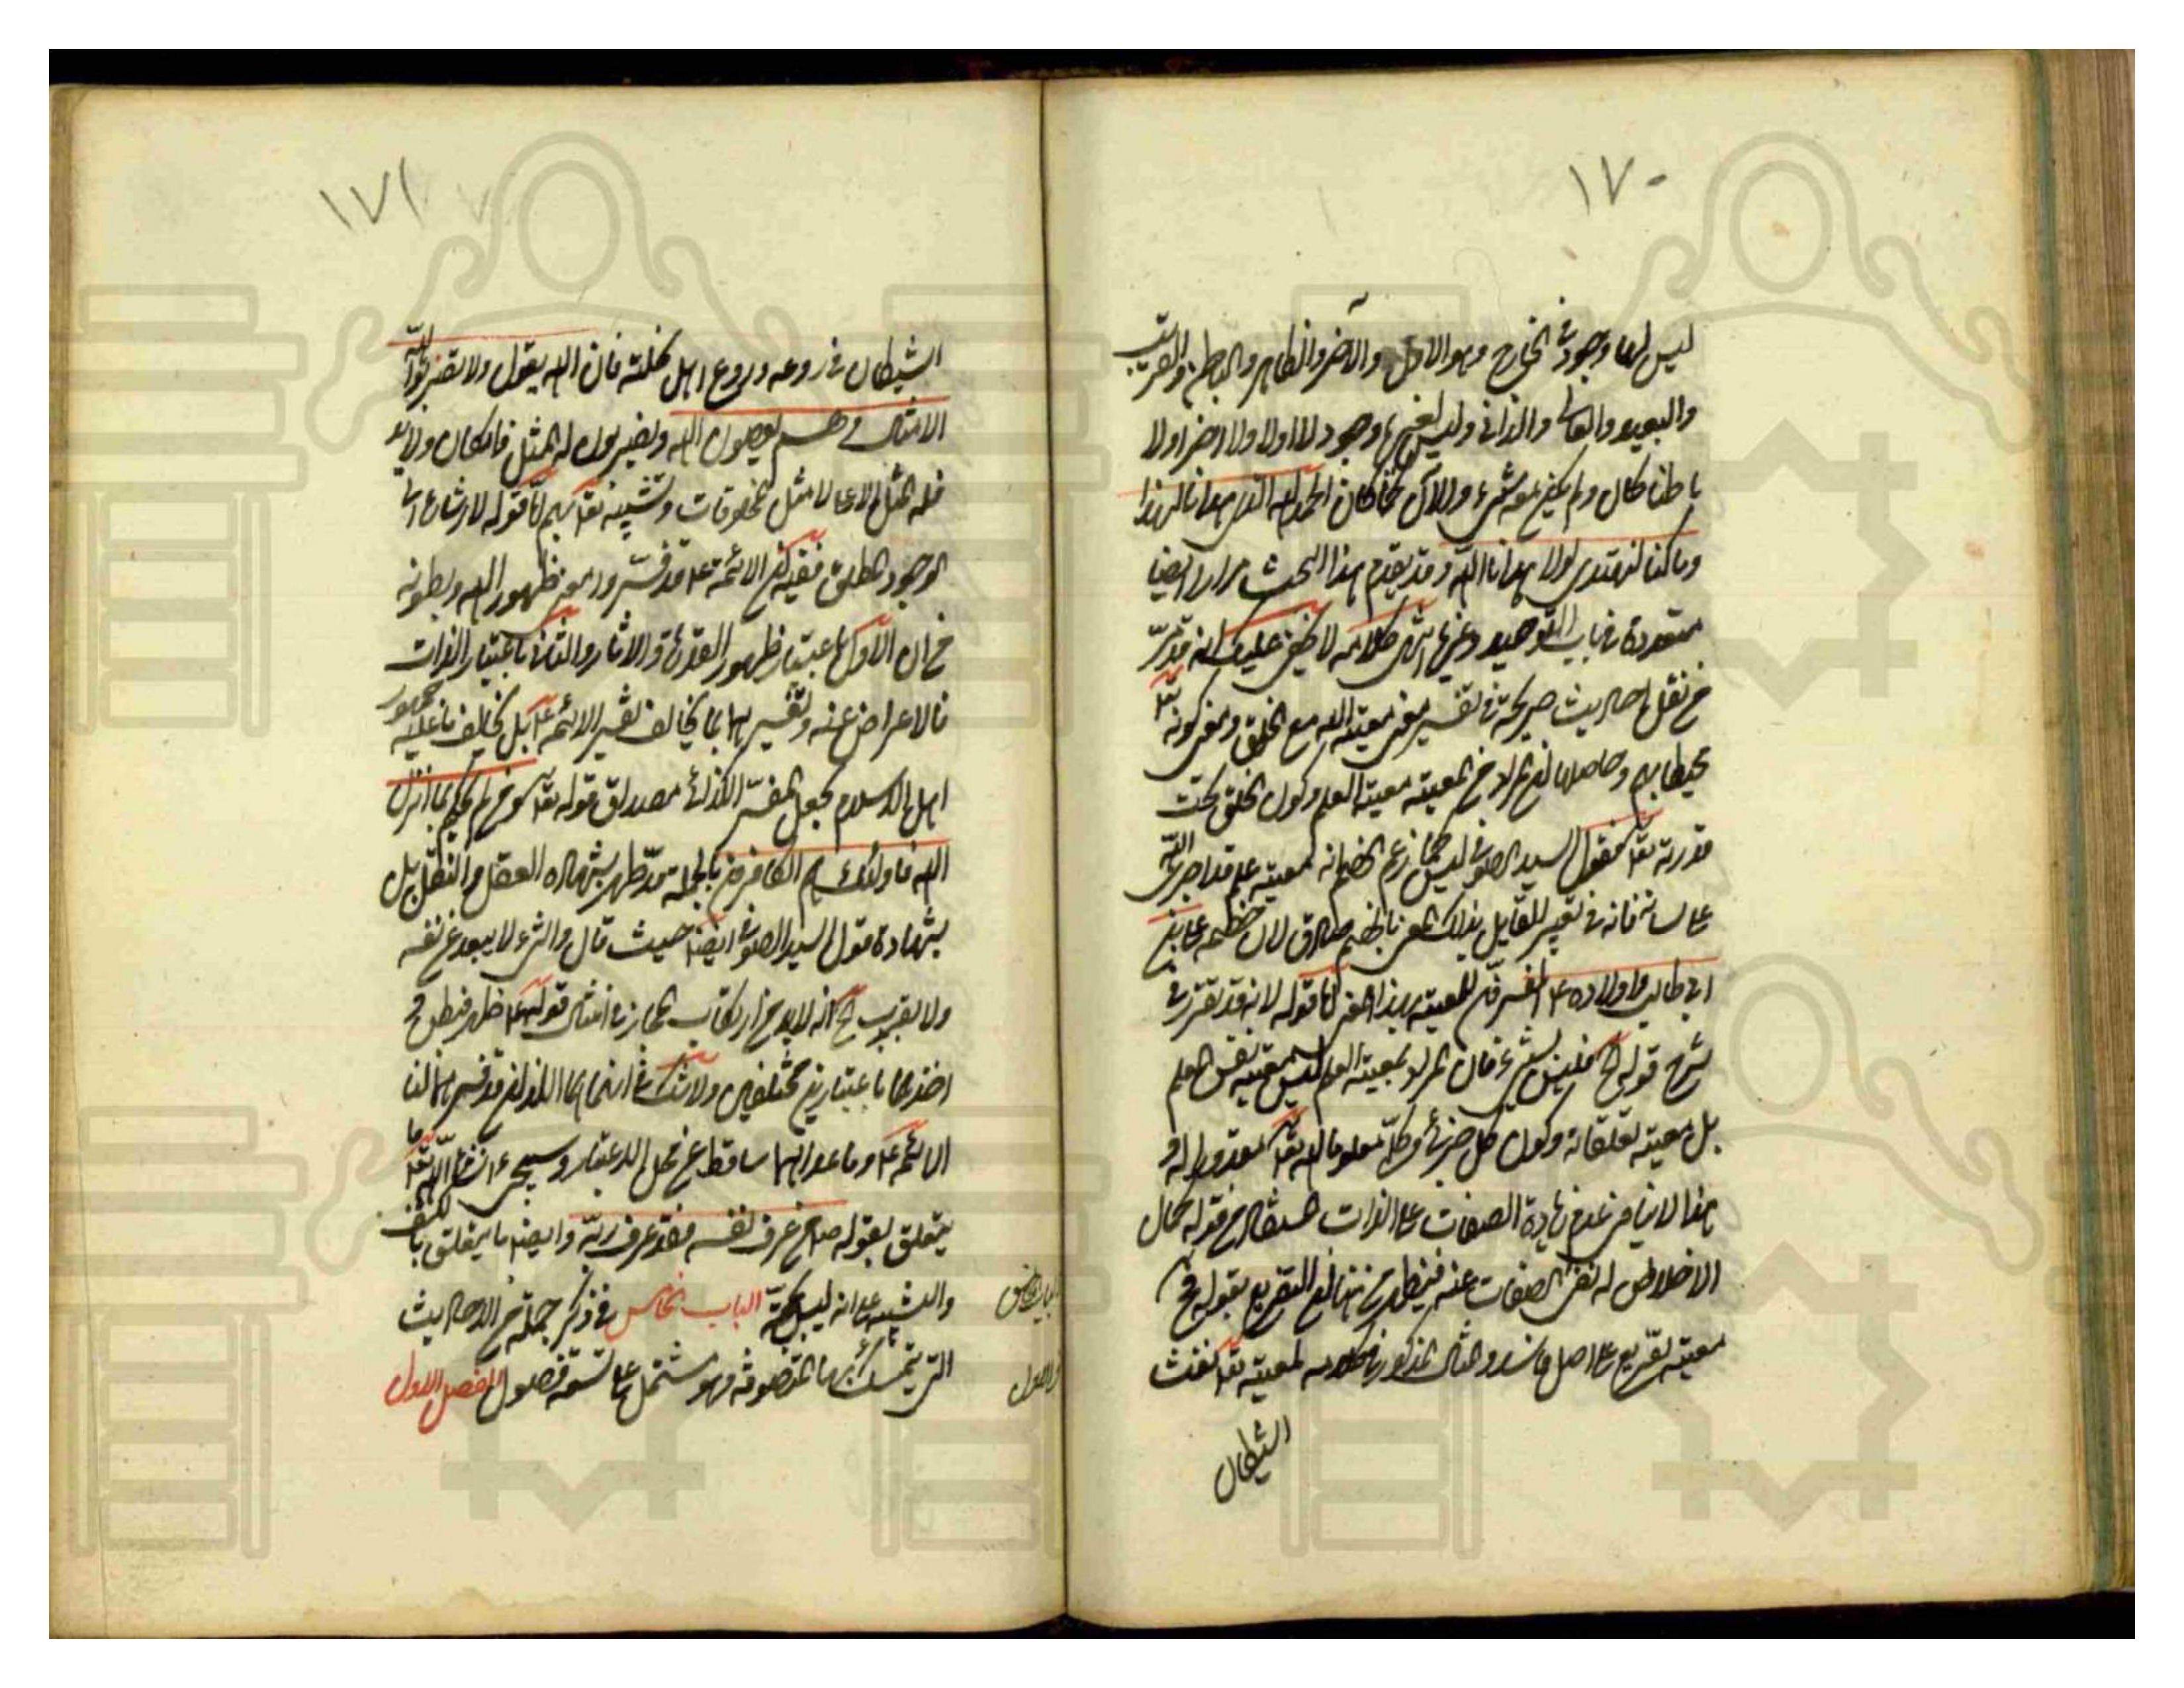 ١٧٠
ليس لها وجود في الخارج وهو الاول والآخر والظاهر والباطن والقريب
والبعيد والعالي والداني وليس لغيره وجود لا اولا ولا اخرا ولا
باطنا كان ولم يكن معه شيء والآن كما كان الحمد لله الذي هدانا لهذا
وما كنا لنهتدي لولا هدانا الله وقد تقدم هذا البحث مرارا ايضا
متعددة في باب التوحيد وغيرها انتهى كلامه لا يخفى عليك انه قد مرّ
من نقل احاديث صريحة في تفسير معنى معية الله مع الخلق ومعنى كونه تعا
محيطا بهم وحاصلها ان المراد من المعية معية العلم وكون الخلق تحت
قدرته تعا فقول السيد الصوفي ليس كما زعم الخصم انه معية علم قد اجرى الله
على لسانه فانه في تعبير القايل بذلك المعنى بالخصم صادق لان خصمه علي بن
ابي طالب واولاده ع المفسرون للمعية بهذا المعنى اما قوله لانه قد تقرر في
شرح قوله فليس بشيء فان المراد بمعية العلم ليس معية نفس العلم
بل معية تعلقاته وكون كل جزئي وكلي معلوما له تعا مقدورا له و
هذا لا ينافي عدم زيادة الصفات على الذات المستفاد من قوله كمال
الاخلاص له نفي الصفات عنه فيظهر من هنا ان التفريع بقوله فمن
معيته تفريع على اصل فاسد والمثال المذكور في كلامه لمعيته تعا نفث
الشيطان
١٧١
الشيطان في روعه وروع اهل نحلته فان الله يقول ولا تضربوا لله
الامثال وهم يعصون الله ويضربون له المثل فان كان ولا بد
فله المثل الاعلى لا مثل المخلوقات وتشبيهه تعا بهم اما قوله لارشاد الى
الوجود المطلق ففيه ان الائمة ع قد فسروا معنى ظهور الله وبطونه
من ان الاول باعتبار ظهور القدرة والآثار والثاني باعتبار الذات
فالاعراض عنه وتفسيرهما بما يخالف تفسير الائمة ع بل يخالف ما عليه جمهور
اهل الاسلام يجعل المفسر الكذائي مصداق قوله تعا ومن لم يحكم بما انزل
الله فاولئك هم الكافرون بالجملة قد ظهر بشهادة العقل والنقل بل
بشهادة قول السيد الصوفي ايضا حيث قال والشيء لا يبعد عن نفسه
ولا يقرب انه لا بد من ارتكاب المجاز في امثال قوله ع ظهر فبطن و
اخذهما باعتبارين مختلفين ولا شك في انهما هما اللذان قد فسرهما لنا
الائمة ع وما عداهما ساقط عن محل الاعتبار وسيجيء انشاء الله تعا ما
يتعلق بقوله ص من عرف نفسه فقد عرف ربه وايضا ما يتعلق بالكشف
والتشبيه على انه ليس بحجة الباب الخامس في ذكر جملة من الاحاديث
التي يتمسك بها المتصوفة وهو مشتمل على تسعة فصول الفصل الاول